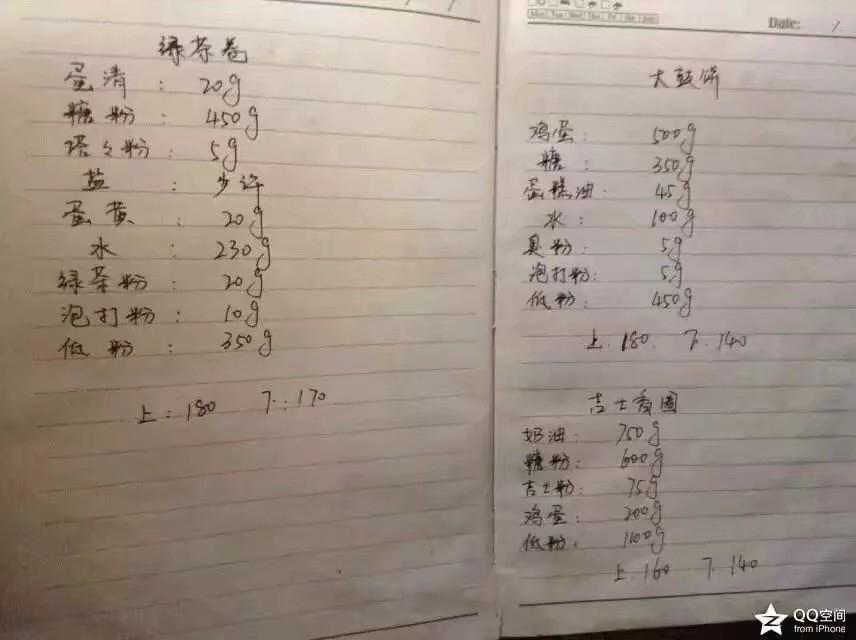 绿茶卷
蛋清: 20g
糖粉: 450g
塔々粉: 5g
盐: 少许
蛋黄: 20g
水: 230g
绿茶粉: 20g
泡打粉: 10g
低粉: 350g
上:180 下:170
Mon Tue Wed Thu Fri Sat Sun
Date: / /
大鼓饼
鸡蛋: 500g
糖: 350g
蛋糕油: 45g
水: 100g
臭粉: 5g
泡打粉: 5g
低粉: 450g
上.180. 下.140
吉士香圆
奶油: 750g
糖粉: 600g
吉士粉: 75g
鸡蛋: 200g
低粉: 1100g
上.160 下.140
QQ空间
from iPhone